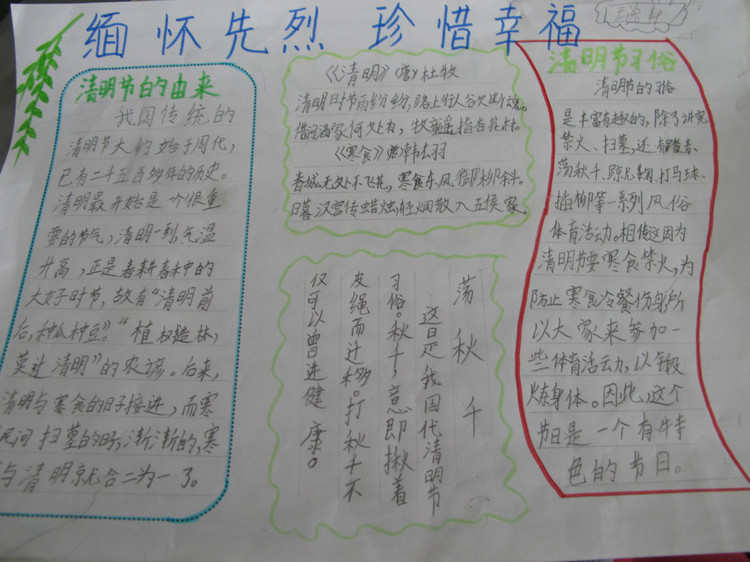 缅怀先烈 珍惜幸福
清明节的由来
我国传统的
清明节大约始于周代,
已有二千五百多年的历史。
清明最开始是一个很重
要的节气,清明一到,气温
升高,正是春耕春种的
大好时节,故有“清明前
后,种瓜种豆。”“植树造林,
莫过清明”的农谚。后来,
清明与寒食的日子接近,而寒
民间扫墓的日子,渐渐的,寒
与清明就合二为一了。
《清明》唐 杜牧
清明时节雨纷纷,路上行人欲断魂。
借问酒家何处有,牧童遥指杏花村。
《寒食》唐 韩翃
春城无处不飞花,寒食东风御柳斜。
日暮汉宫传蜡烛,轻烟散入五侯家。
荡秋千
这是我国代清明节
习俗。秋千,意即揪着
皮绳而迁移。打秋千不
仅可以曾进健康。
清明节习俗
清明节的习俗
是丰富有趣的,除了讲究
禁火、扫墓,还有踏青、
荡秋千、踢足鞠、打马球、
插柳等一系列风俗
体育活动。相传这因为
清明节要寒食禁火,为
防止寒食冷餐伤身,所
以大家来参加一
些体育活动,以锻
炼身体。因此,这个
节日是一个有特
色的节日。